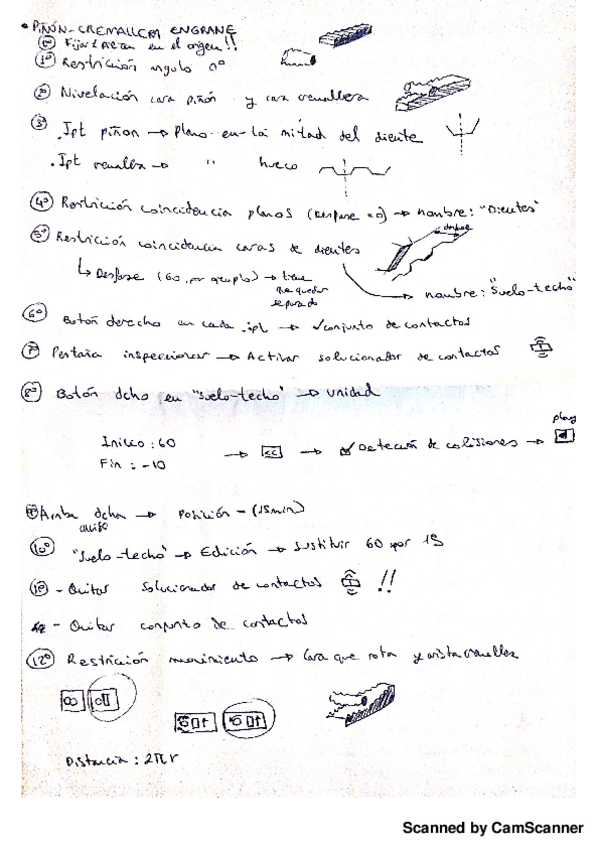 • PIÑÓN-CREMALLERA ENGRANE
0º Fijar 1 pieza en el origen!!
1º Restricción ángulo 0º
2º Nivelación cara piñón y cara cremallera
3º .Ipt piñón → Plano en la mitad del diente
.Ipt cremallera → " hueco
4º Restricción coincidencia planos (Desfase = 0) → nombre: "Dientes"
desfase
5º Restricción coincidencia caras de dientes
↳ Desfase (60, por ejemplo) → tiene
que quedar
separado
→ nombre: "Suelo-techo"
6º Botón derecho en cada .ipt → ✓conjunto de contactos
7º Pestaña inspeccionar → Activar solucionador de contactos
8º Botón dcho en "suelo-techo" → unidad
play
Inicio: 60 → << → ☑ Detección de colisiones →
Fin: -10
Arriba dcha → Posición -(15min)
10º "suelo-techo" → Edición → sustituir 60 por 15
- Quitar solucionador de contactos !!
- Quitar conjunto de contactos
12º Restricción movimiento → Cara que rota y arista cremallera
Distancia: 2πr
Scanned by CamScanner